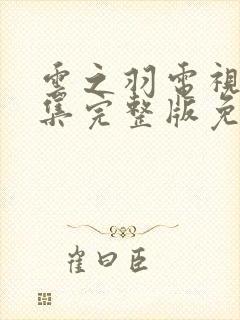 雲之羽電視
集完整版免
崔曰臣